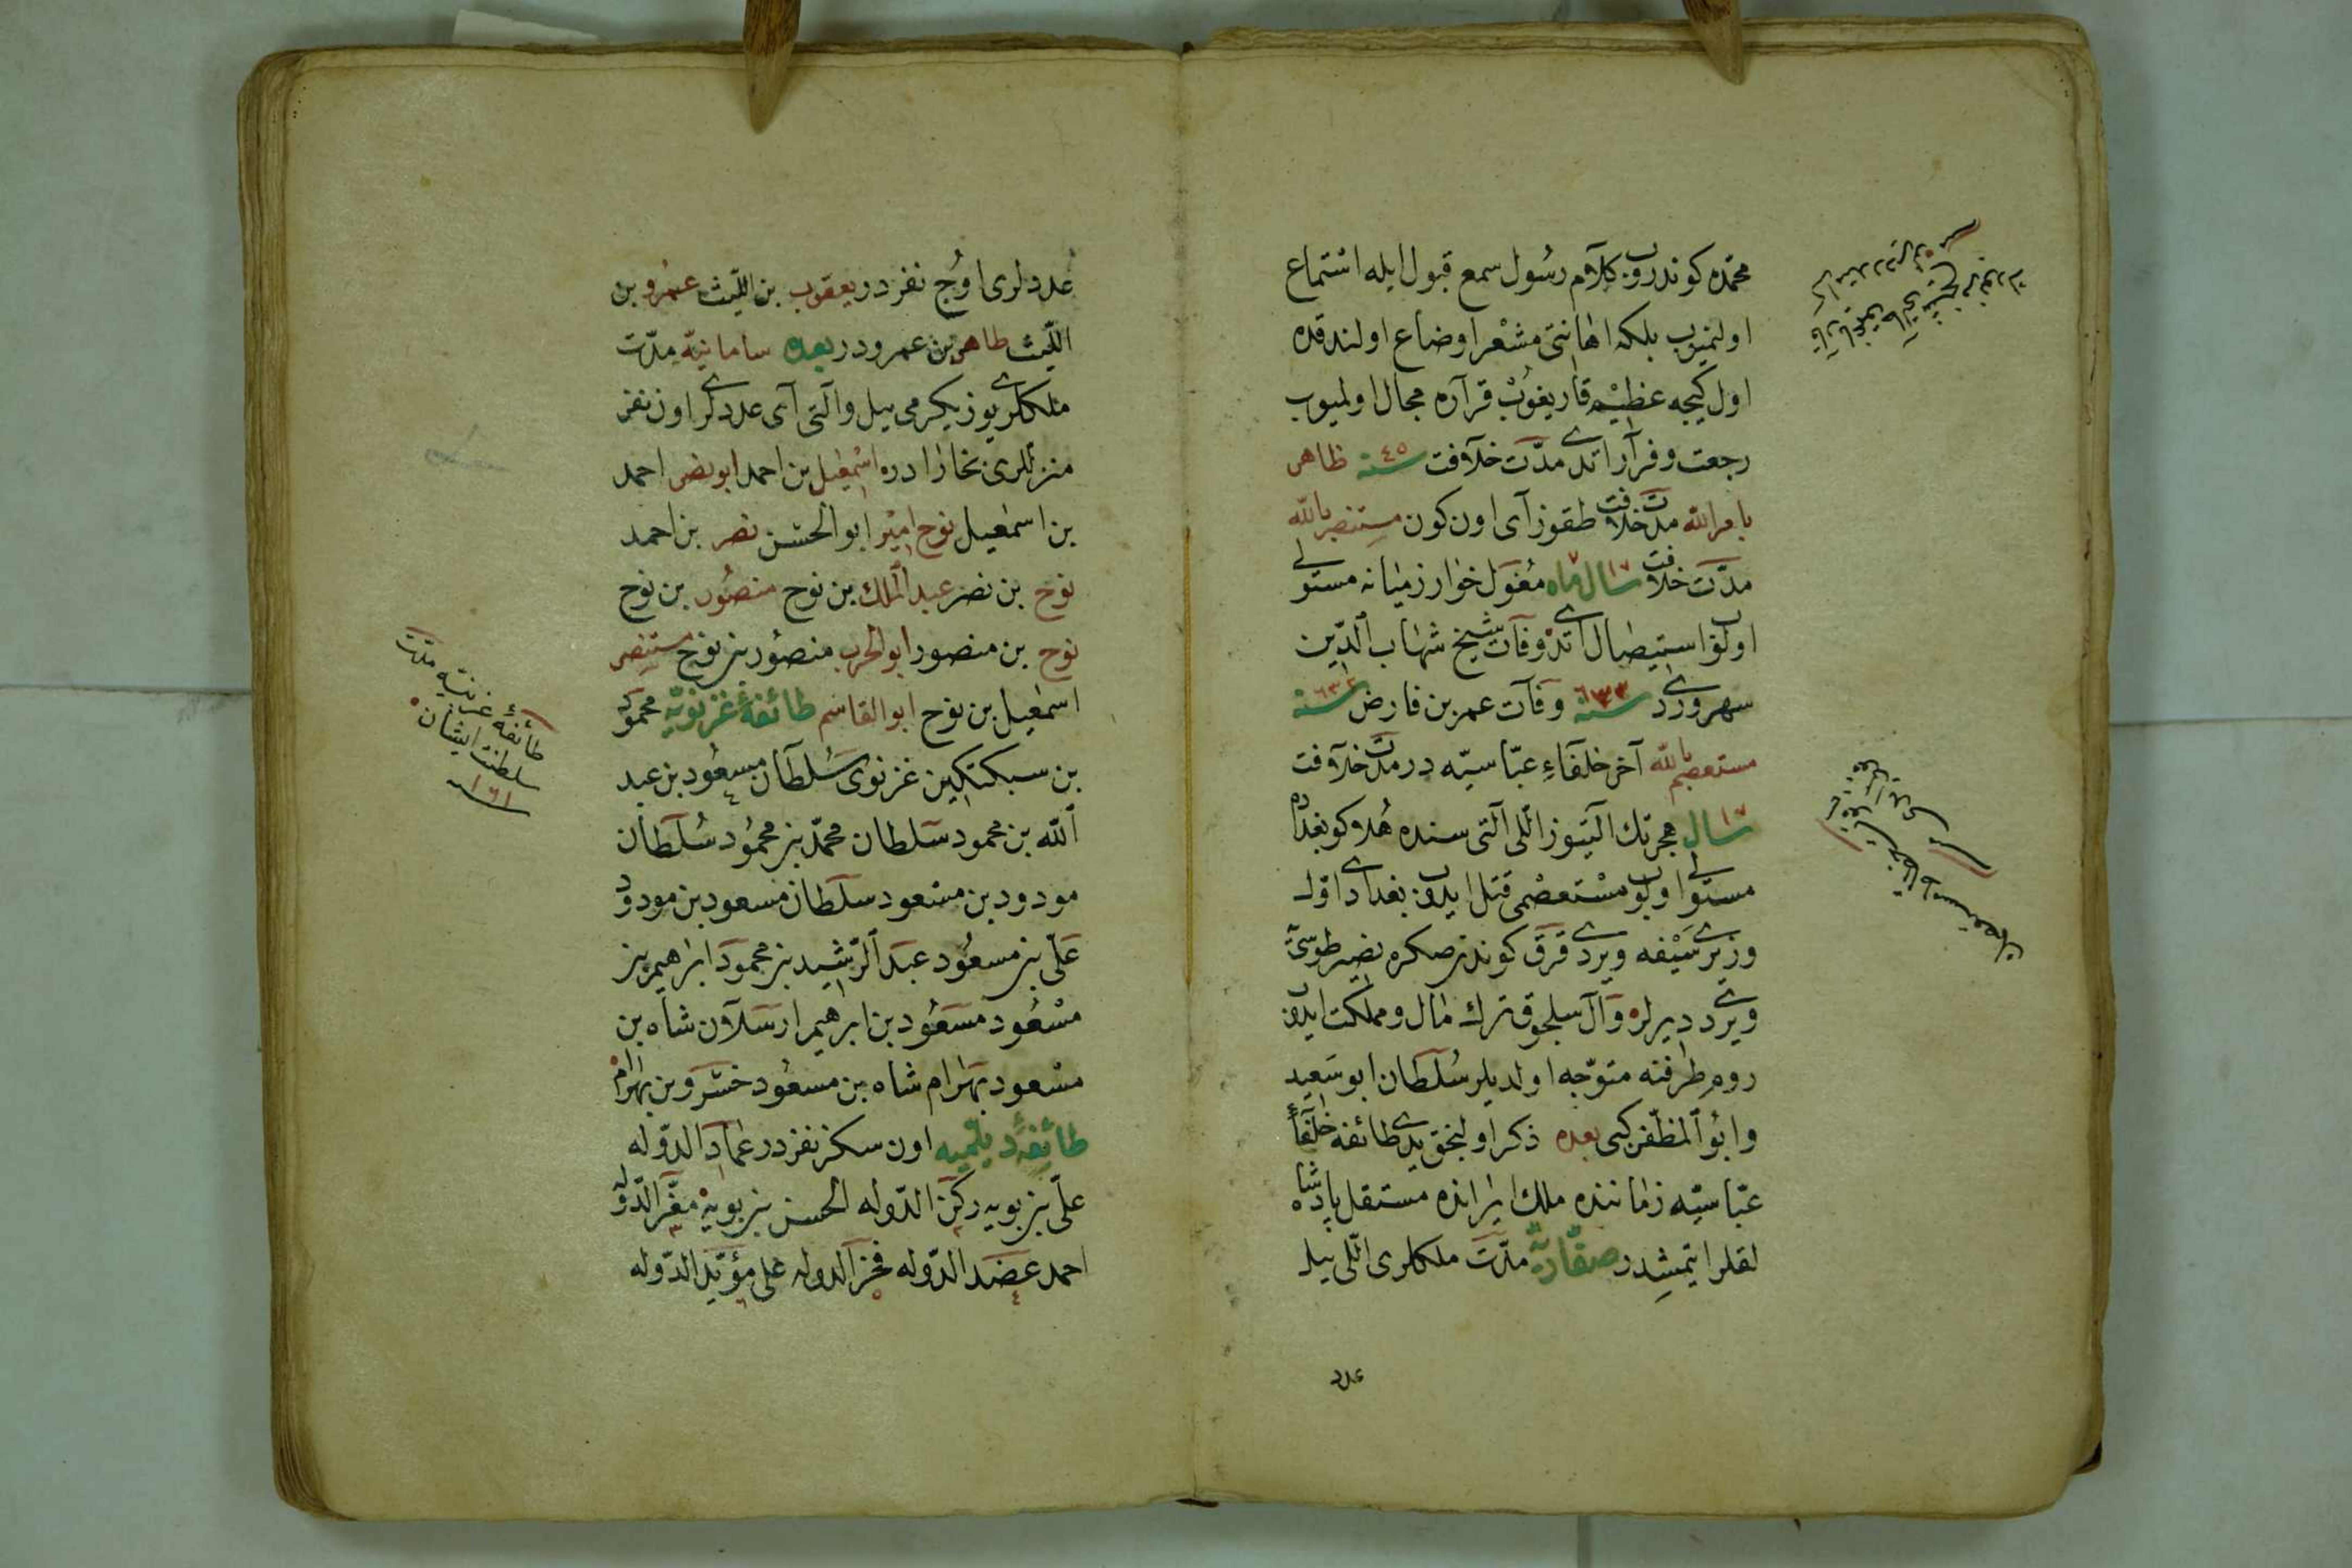 محمّده كوندروب كلام رسول سمع قبول ايله استماع
اولنميوب بلكه اهانتى مشعر اوضاع اولندقده
اول كيجه عظيم قار يغوب قراره مجال اولميوب
رجعت و فرار اتدى مدّت خلافت سنة ٤٥ ظاهر
بامر الله مدّت خلافت طقوز آى اون كون مستنصر بالله
مدّت خلافت ١٧ سال ماه مغول خوارزميانه مستولى
اولوب استيصال اتدى وفات شيخ شهاب الدّين
سهروردى سنة ٦٣٣ وفات عمر بن فارض سنة ٦٣٢
مستعصم بالله آخر خلفاء عبّاسيّه در مدّت خلافت
١٦ سال هجرتك التيوز اللى التى سنده هلاكو بغداده
مستولى اولوب مستعصمى قتل ايدوب بغدادى اوّل
وزيرى سيفه ويردى قرق كوندن صكره نصير طوسى يه
ويردى ديرلر و آل سلجوق ترك مال و مملكت ايدوب
روم طرفنه متوجّه اولديلر سلطان ابو سعيد
وابو المظفّر كبى بعده ذكر اولنجق يدى طائفه خلفاء
عبّاسيّه زماننده ملك ايرانده مستقل پادشاه
لقلر ايتمشدر صفّاريّه مدّت ملكلرى اللى ييل
عدد
عددلرى اوج نفردر يعقوب بن الليث عمرو بن
الليث طاهر بن عمرودر بعده سامانيّه مدّت
ملكلرى يوز يكرمى ييل والتى آى عددلرى اون نفر
منزللرى بخارادره اسمعيل بن احمد ابو نصر احمد
بن اسمعيل نوح امير ابو الحسن نصر بن احمد
نوح بن نصر عبد الملك بن نوح منصور بن نوح
نوح بن منصور ابو الحرب منصور بن نوح مستنصر
اسمعيل بن نوح ابو القاسم طائفهٔ غزنويّه محمود
بن سبكتكين غزنوى سلطان مسعود بن عبد
الله بن محمود سلطان محمّد بن محمود سلطان
مودود بن مسعود سلطان مسعود بن مودود
علّى بن مسعود عبد الرّشيد بن محمود ابراهيم بن
مسعود مسعود بن ابرهيم ارسلان شاه بن
مسعود بهرام شاه بن مسعود خسرو بن بهرام
طائفهٔ ديلميه اون سكز نفردر عماد الدّوله
علّى بن بويه ركن الدّوله الحسن بن بويه معزّ الدّوله
احمد عضد الدّوله فخر الدوله على مؤيّد الدّوله
طائفهٔ غزنيّه مدّت
سلطنت ايشان
١٦١